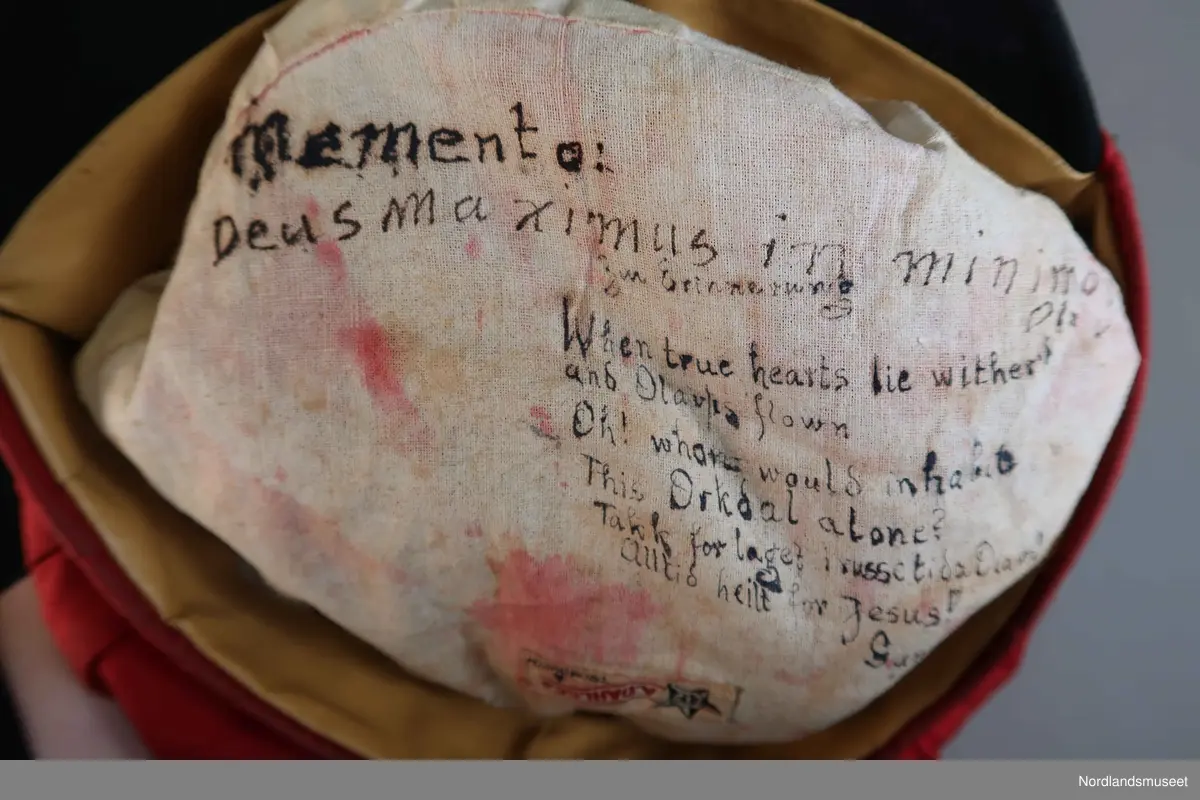 Memento:
Deus Maximus in minimo.
Zur Erinnerung
When true hearts lie wither'd
and Olavs flown
Oh! whom would inhabit
This Orkdal alone?
Takk for laget i russetida Olav!
Alltid heilt for Jesus!
Nordlandsmuseet